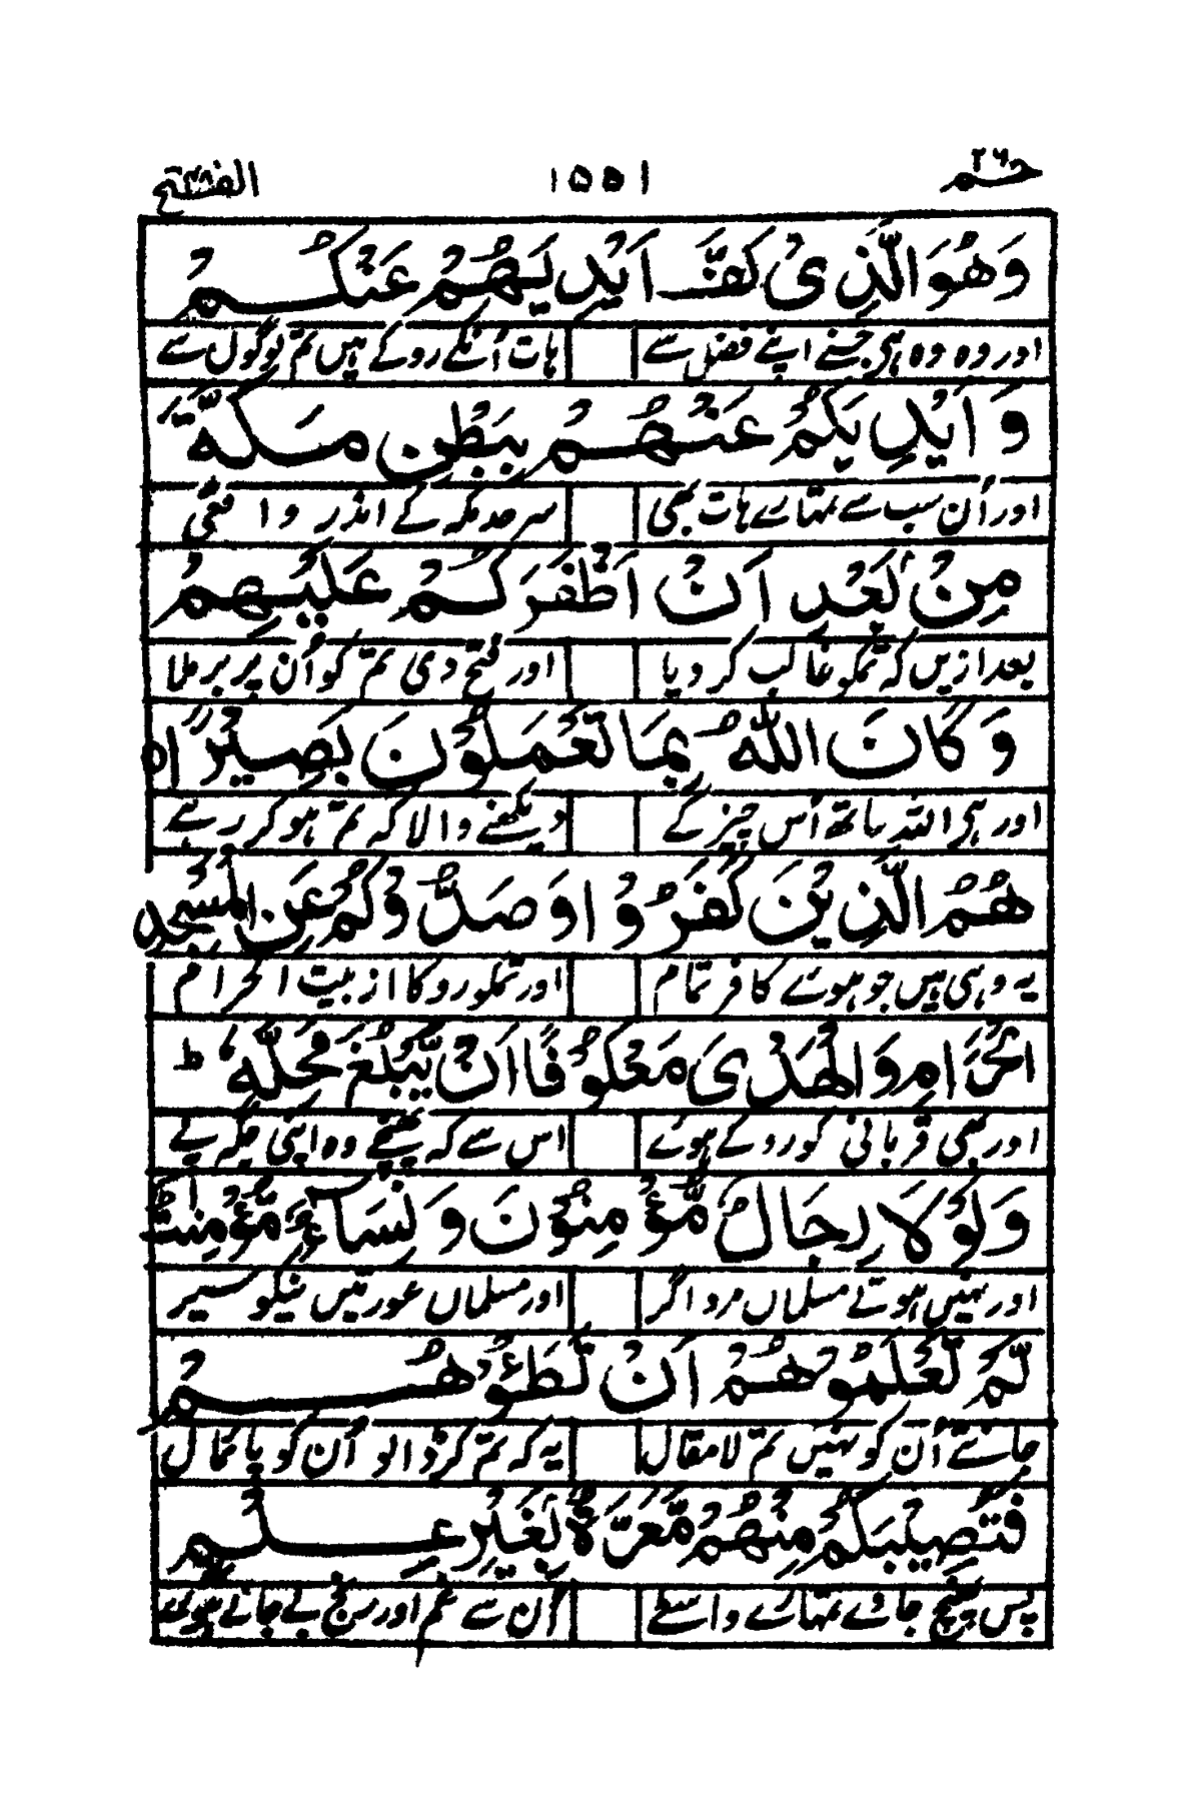 حٰم ٢٦ ١٥٥١ الفتح ٤٨
وَهُوَ الَّذِىْ كَفَّ اَيْدِيَهُمْ عَنْكُمْ
اور وہ وہ ہی جسنے اپنے فضل سے ہات اُنکے روکے ہیں تم لوگوں سے
وَ اَيْدِيَكُمْ عَنْهُمْ بِبَطْنِ مَكَّةَ
اور اُن سب سے تمہارے ہات بھی سرحد مکہ کے اندر واقعی
مِنْۢ بَعْدِ اَنْ اَظْفَرَكُمْ عَلَيْهِمْ
بعد ازیں کہ تمکو غالب کر دیا اور فتح دی تم کو اُن پر برملا
وَ كَانَ اللّٰهُ بِمَا تَعْمَلُوْنَ بَصِيْرًا ۵
اور ہی اللہ ساتھ اُس چیز کے دیکھنے والا کہ تم ہو کر رہے
هُمُ الَّذِيْنَ كَفَرُوْا وَ صَدُّوْكُمْ عَنِ الْمَسْجِدِ
یہ وہی ہیں جو ہوئے کافر تمام اور تمکو روکا از بیت الحرام
الْحَرَامِ وَ الْهَدْىَ مَعْكُوْفًا اَنْ يَّبْلُغَ مَحِلَّهٗ ؕ
اور بھی قربانی کو روکے ہوئے اس سے کہ پہنچے وہ اپنی جگہ پے
وَ لَوْلَا رِجَالٌ مُّؤْمِنُوْنَ وَ نِسَآءٌ مُّؤْمِنٰتٌ
اور نہیں ہوتے مسلماں مرد اگر اور مسلماں عورتیں نیکو سیر
لَّمْ تَعْلَمُوْهُمْ اَنْ تَطَـُٔوْهُمْ
جانتے اُن کو نہیں تم لامقال یہ کہ تم کر ڈالو اُن کو پائمال
فَتُصِيْبَكُمْ مِنْهُمْ مَّعَرَّةٌۢ بِغَيْرِ عِلْمٍ
پس پہنچ جاوے تمہارے واسطے اُن سے غم اور رنج بے جانے ہوئے